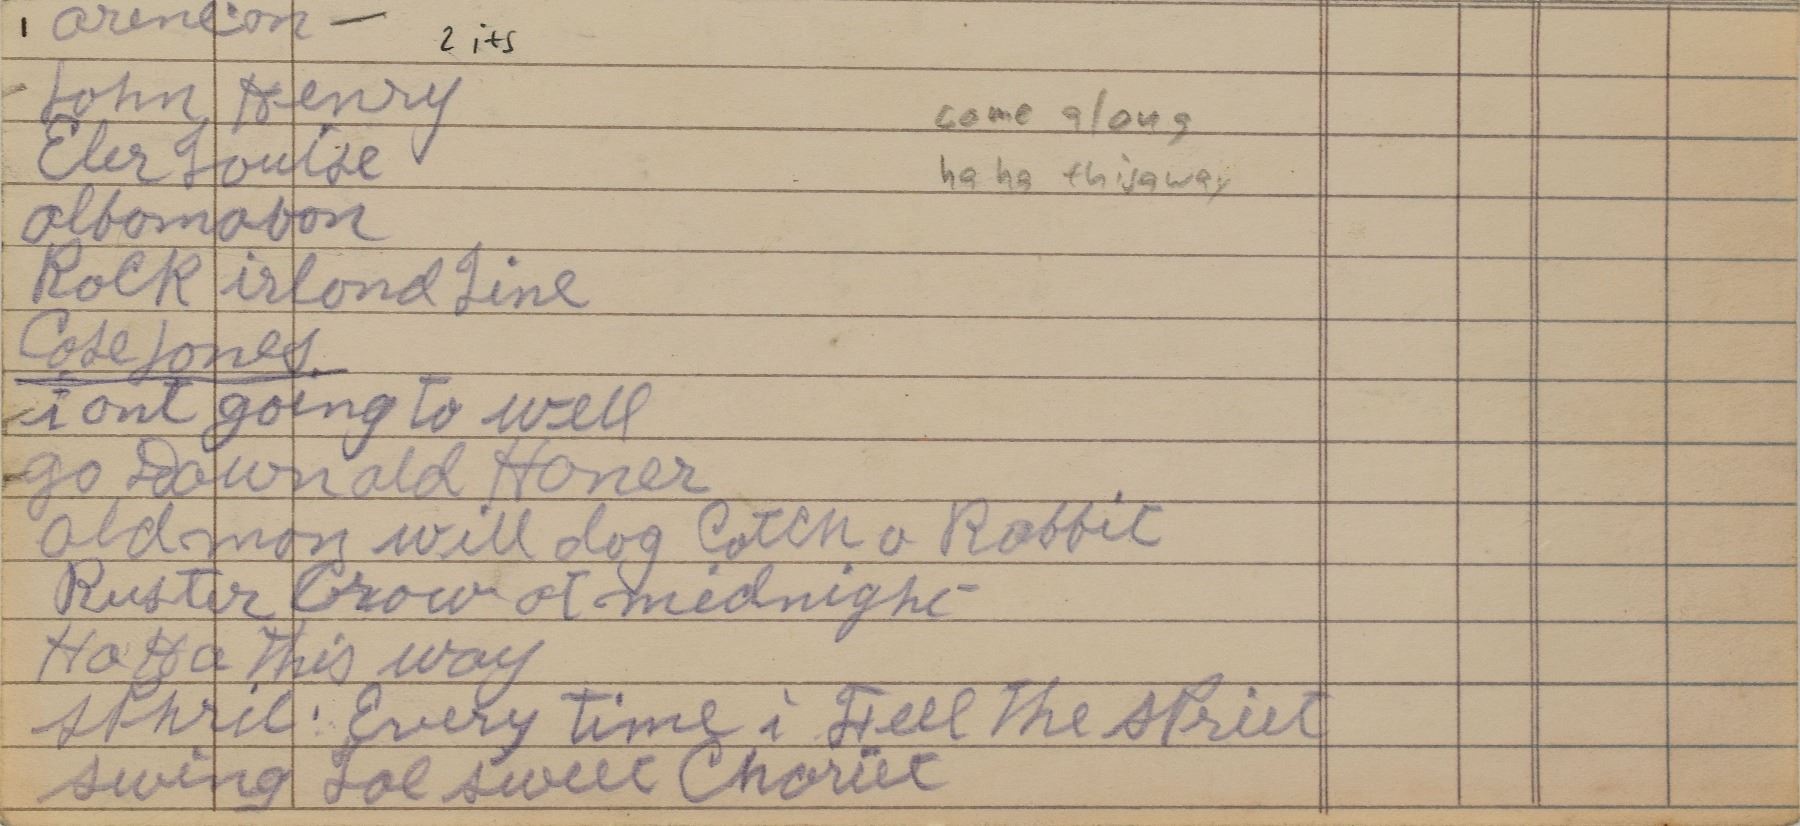 1 arencon —
2 its
John Henry
come along
Eler Louise
ha ha thisaway
albomabon
Rock irlond Line
Cose Jones.
i ont going to well
go Down old Honer
old man will dog Catch a Rabbit
Ruster Crow at midnight
Ha Ha This way
sPhril: Every time i Feel The sPriet
swing Loe sweet Choriet